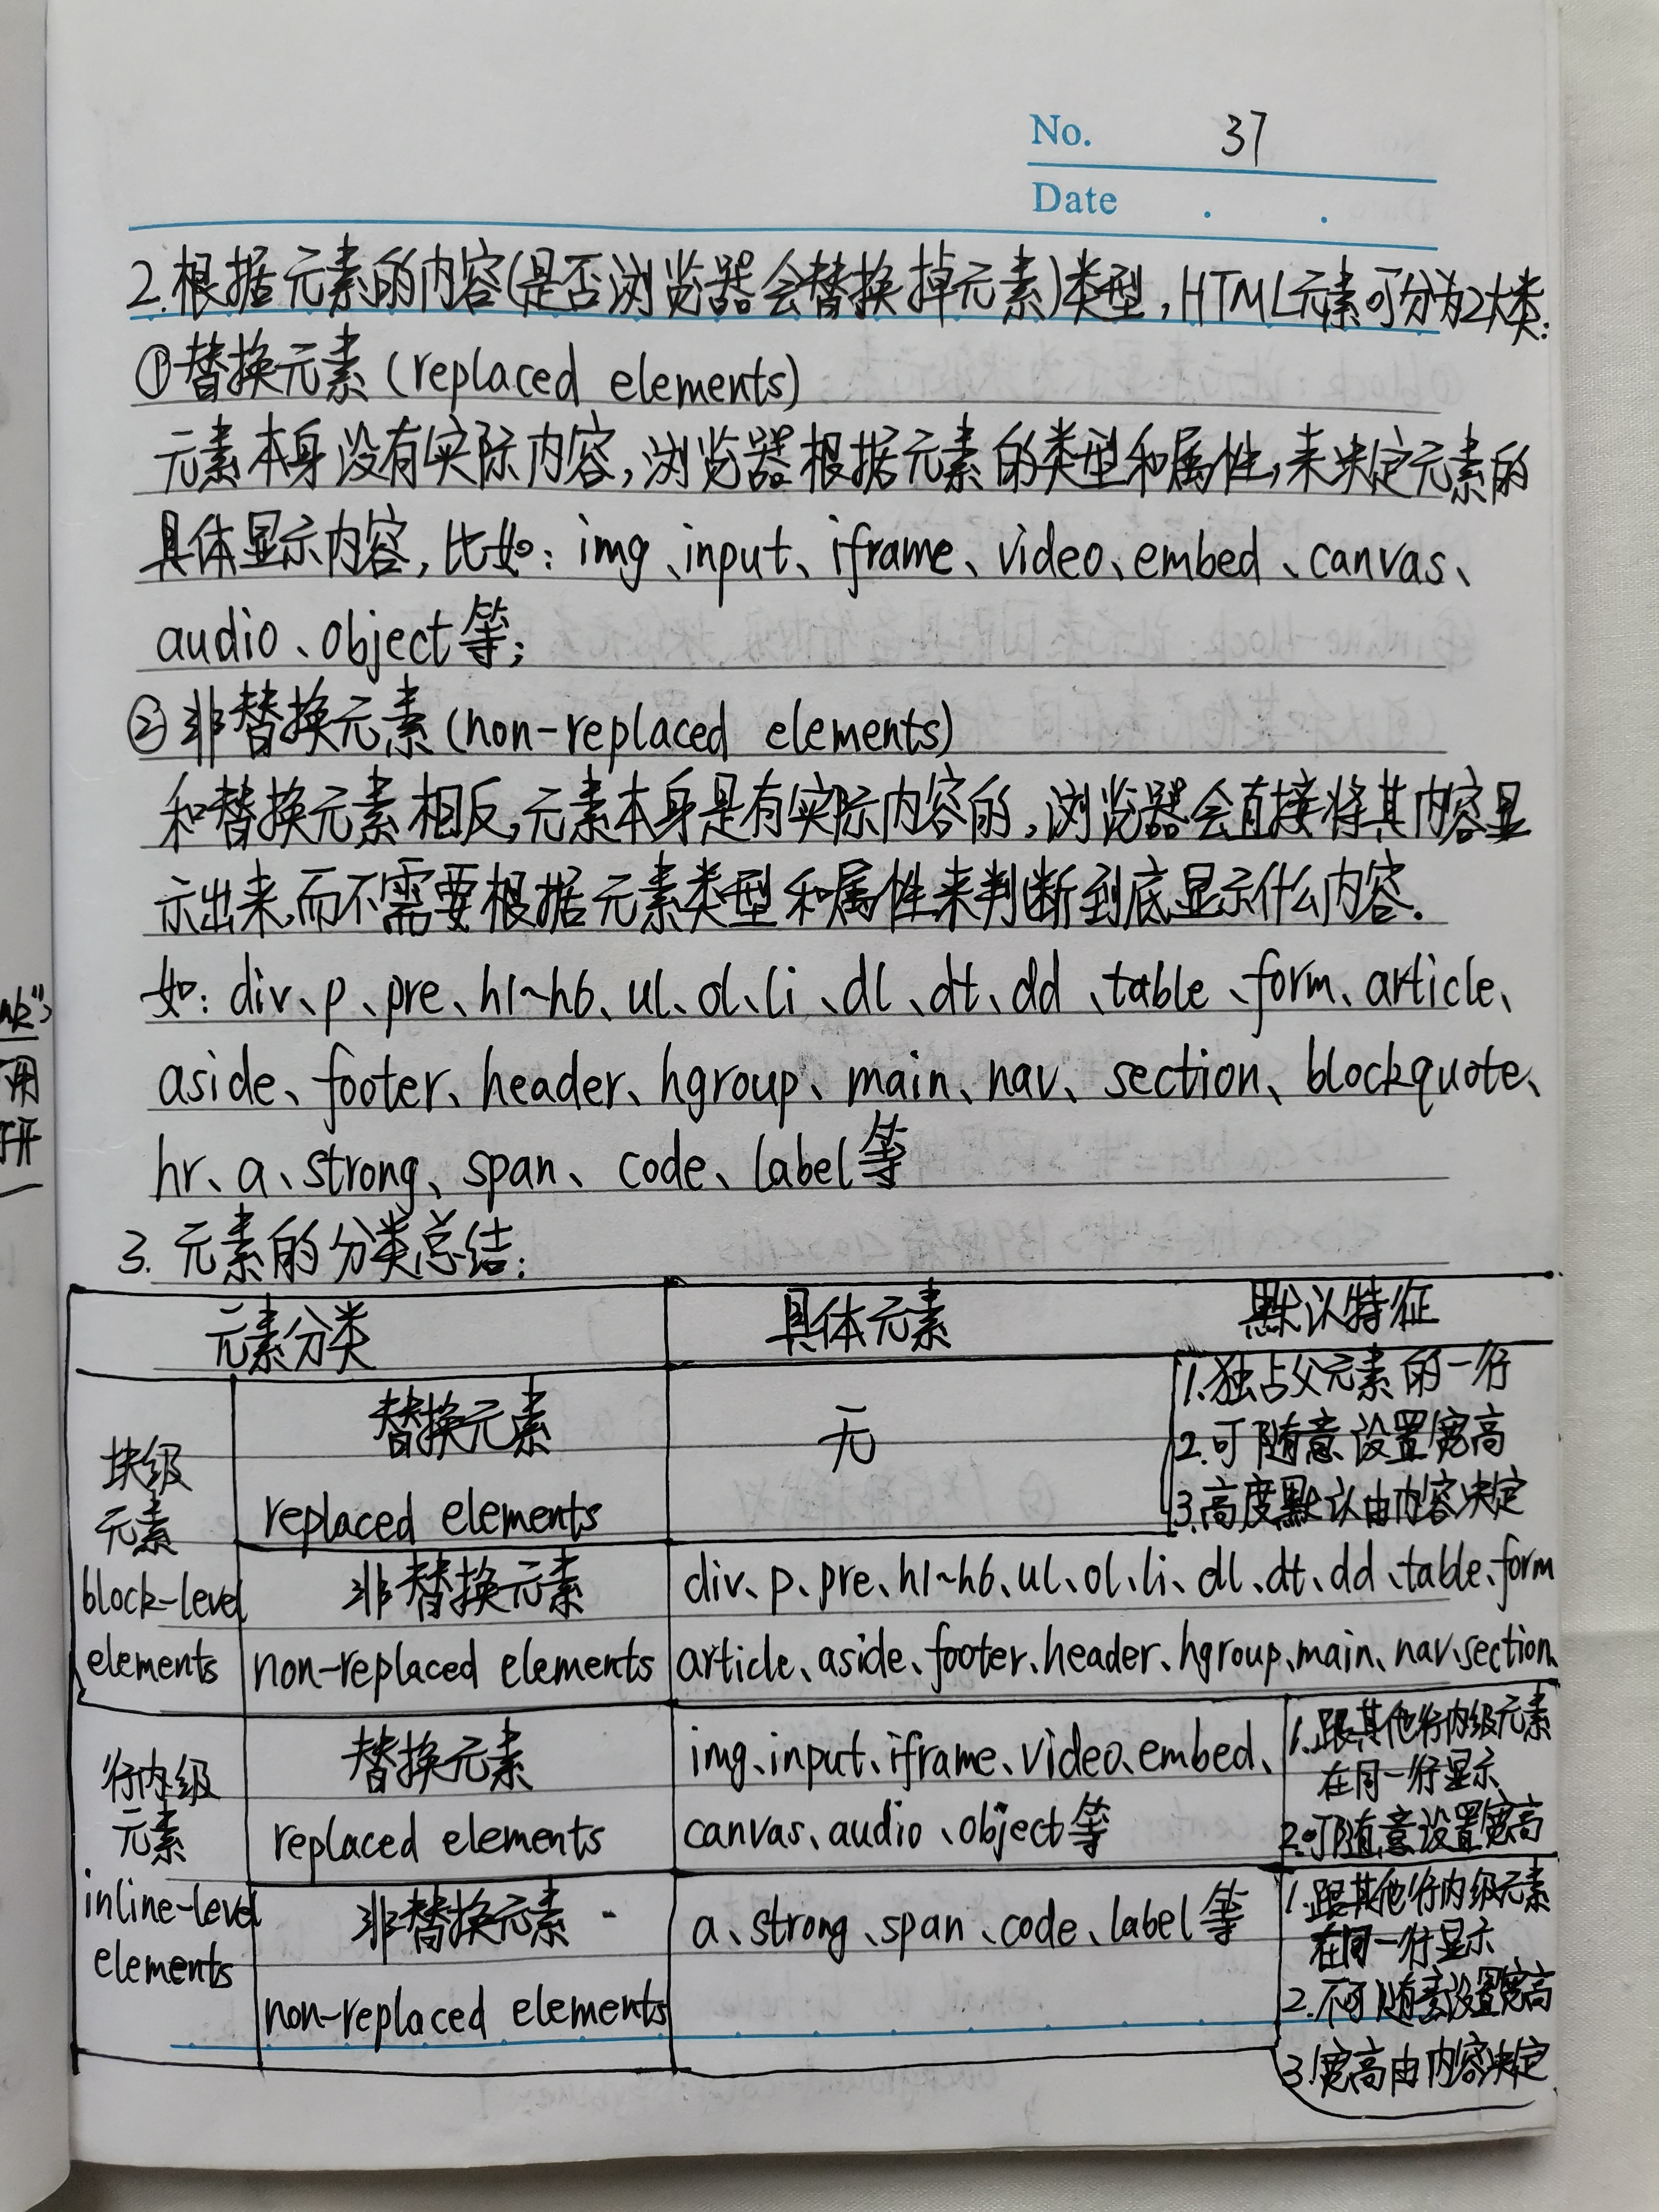 No. 37
Date . .
2.根据元素的内容(是否浏览器会替换掉元素)类型,HTML元素可分为2大类:
①替换元素(replaced elements)
元素本身没有实际内容,浏览器根据元素的类型和属性,来决定元素的
具体显示内容,比如:img、input、iframe、video、embed、canvas、
audio、object等;
②非替换元素(non-replaced elements)
和替换元素相反,元素本身是有实际内容的,浏览器会直接将其内容显
示出来,而不需要根据元素类型和属性来判断到底显示什么内容.
如:div、p、pre、h1~h6、ul、ol、li、dl、dt、dd、table、form、article、
aside、footer、header、hgroup、main、nav、section、blockquote、
hr、a、strong、span、code、label等
3.元素的分类总结:
元素分类 具体元素 默认特征
块级
元素
block-level
elements
替换元素
replaced elements
无
1.独占父元素的一行
2.可随意设置宽高
3.高度默认由内容决定
非替换元素
non-replaced elements
div、p、pre、h1~h6、ul、ol、li、dl、dt、dd、table、form
article、aside、footer、header、hgroup、main、nav、section、
行内级
元素
inline-level
elements
替换元素
replaced elements
img、input、iframe、video、embed、
canvas、audio、object等
1.跟其他行内级元素
在同一行显示
2.可随意设置宽高
非替换元素
non-replaced elements
a、strong、span、code、label等
1.跟其他行内级元素
在同一行显示
2.不可随意设置宽高
3.宽高由内容决定